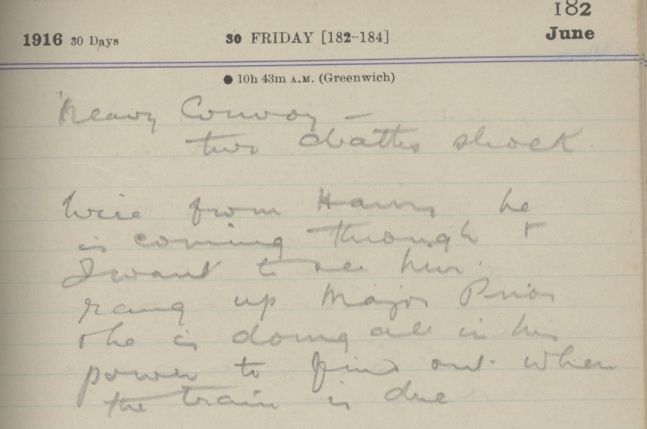 182
1916 30 Days 30 FRIDAY [182-184] June
● 10h 43m A.M. (Greenwich)
heavy Convoy –
two deaths shock
Wire from Harry he
is coming through &
I want to see him.
rang up Major Prior
& he is doing all in his
power to find out when
the train is due